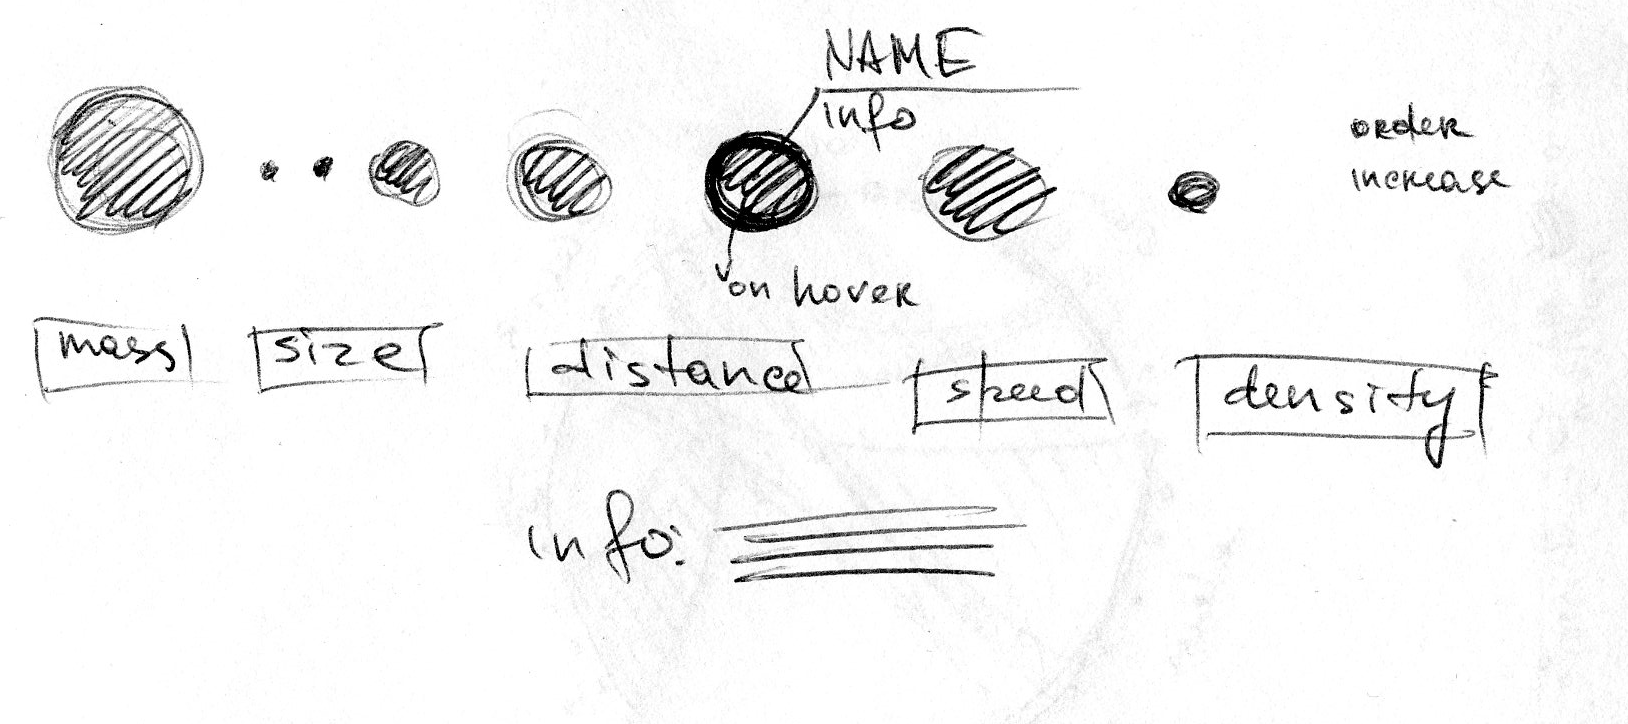 NAME
info
order
increase
on hover
mass
size
distance
speed
density
info: